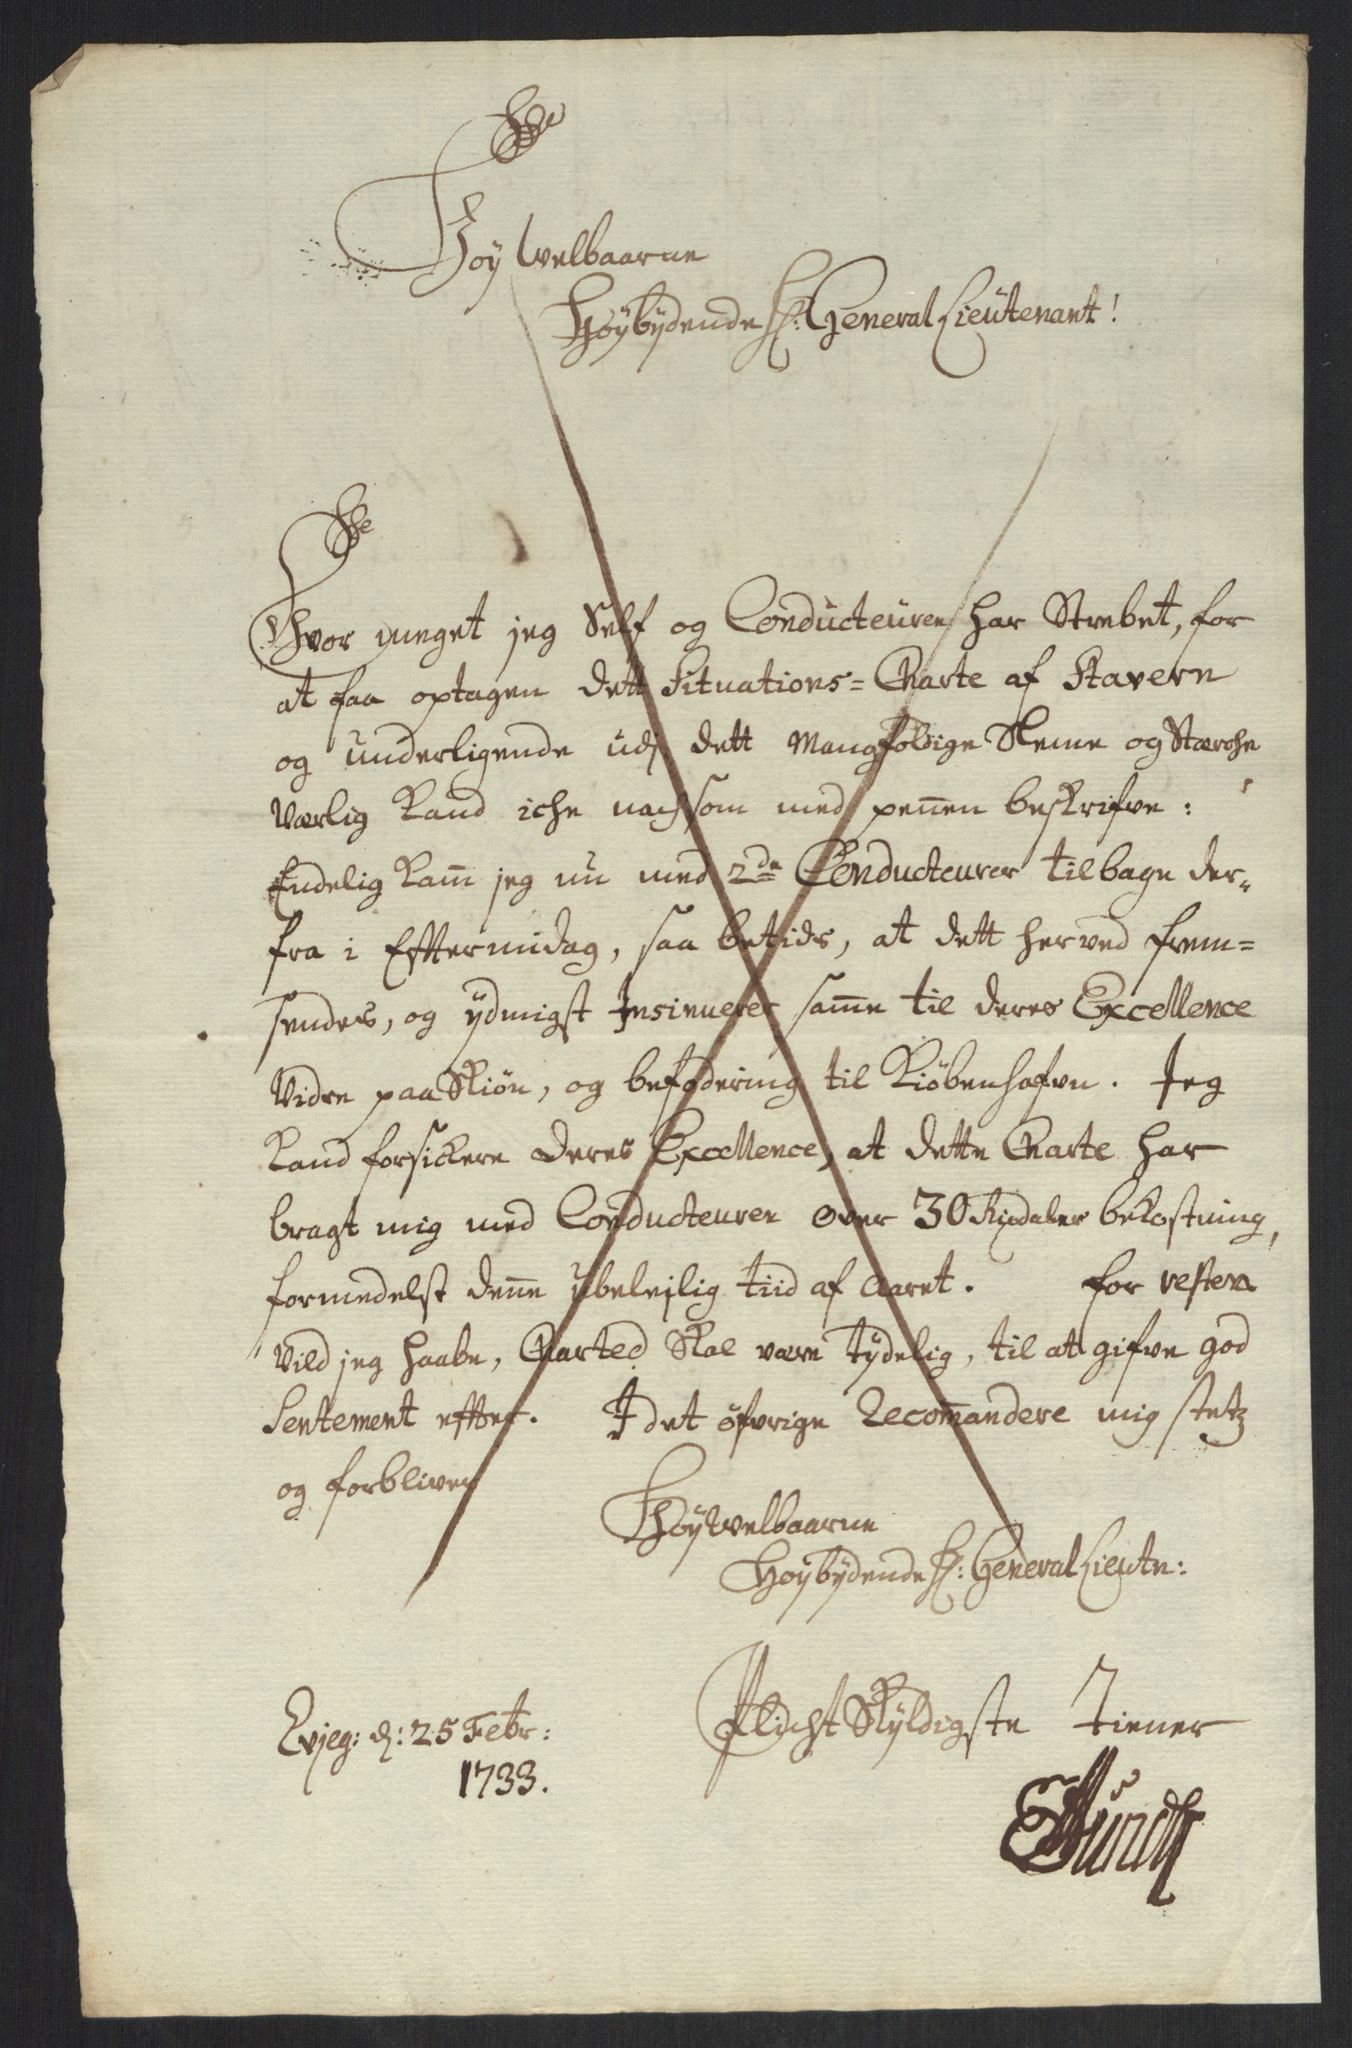 Høy Welbaarne
Høybydende Hr: General Lieutenant!
Hvor meget jeg Self og Conducteuren har Strebet, for
at faa optagen dett Situations= Charte af Stavern
og underligende udj dett Mangfoldige Sneme og Stærche
Værlig Kand iche nochsom med pennen beskrifve:
Endelig kam jeg nu med 2de Conducteurer tilbage der„
fra i Efftermidag, saa betids, at dett herved frem=
sendes, og ydmigst Insinuerer samme til deres Excellence
Vidre paa Skiøn, og befodering til Kiøbenhafvn. Jeg
Kand forsickere Deres Excellence, at dette Charte har
bragt mig med Conducteuren over 30 Rixdaler bekostning,
formedelst denne ubelejlig tiid af Aaret. for resten
Vild jeg haabe, Charted Skal være tydelig, til at gifve god
Sentement effter. I det øfvrige Recommandere mig stetz
og forbliver
Høy Welbaarne
Høybydende Hr: General Lieutn:
Plicht Skyldigste Tiener
Evjeg: d: 25 Febr:
1733.